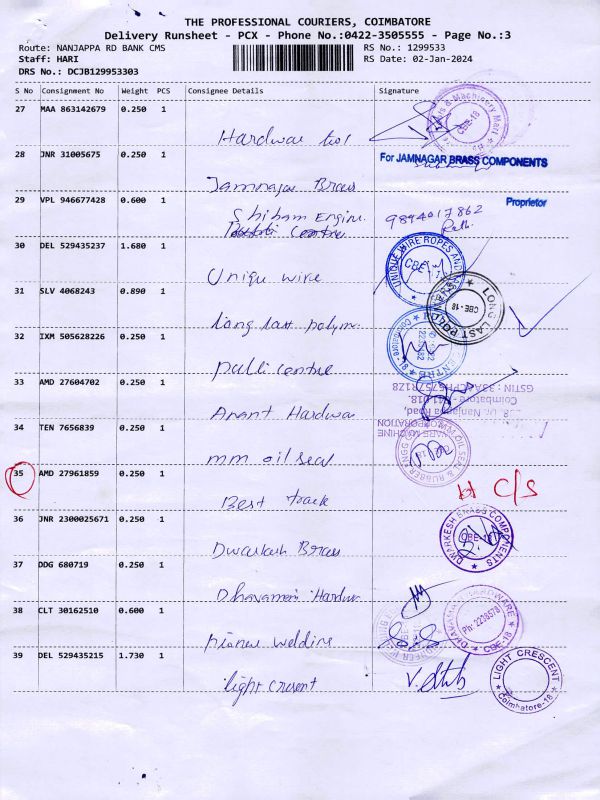 THE PROFESSIONAL COURIERS, COIMBATORE
Delivery Runsheet - PCX - Phone No.:0422-3505555 - Page No.:3
Route: NANJAPPA RD BANK CMS
RS No.: 1299533
Staff: HARI
RS Date: 02-Jan-2024
DRS No.: DCJB129953303
S No Consignment No Weight PCS Consignee Details Signature
27 MAA 863142679 0.250 1
Hardwar tool
28 JNR 31005675 0.250 1
For JAMNAGAR BRASS COMPONENTS
Jamnagar Brass
Proprietor
29 VPL 946677428 0.600 1
Shibam Engine.
9894017862
Centre
30 DEL 529435237 1.680 1
UNIQUE WIRE ROPES AND
CBE
Unique wire
31 SLV 4068243 0.890 1
LONG LAST
CBE-18
Long last polyme
32 IXM 505628226 0.250 1
Pulli centre
33 AMD 27604702 0.250 1
GSTIN : 33A
Coimbatore - 641 018.
Dr. Nanjappa Road,
Anant Hardwar
34 TEN 7656839 0.250 1
MM OIL SEAL & RUBBER
mm oil seal
35 AMD 27961859 0.250 1
C/S
Best track
36 JNR 2300025671 0.250 1
DWARKESH BRASS COMPONENTS
CBE-18
Dwarkesh Brass
37 DDG 680719 0.250 1
Dhavamani Hardwar
38 CLT 30162510 0.600 1
HARDWARE
Ph: 2238578
CBE-18
Pioneer welding
39 DEL 529435215 1.730 1
LIGHT CRESCENT
Coimbatore-18
light cresent